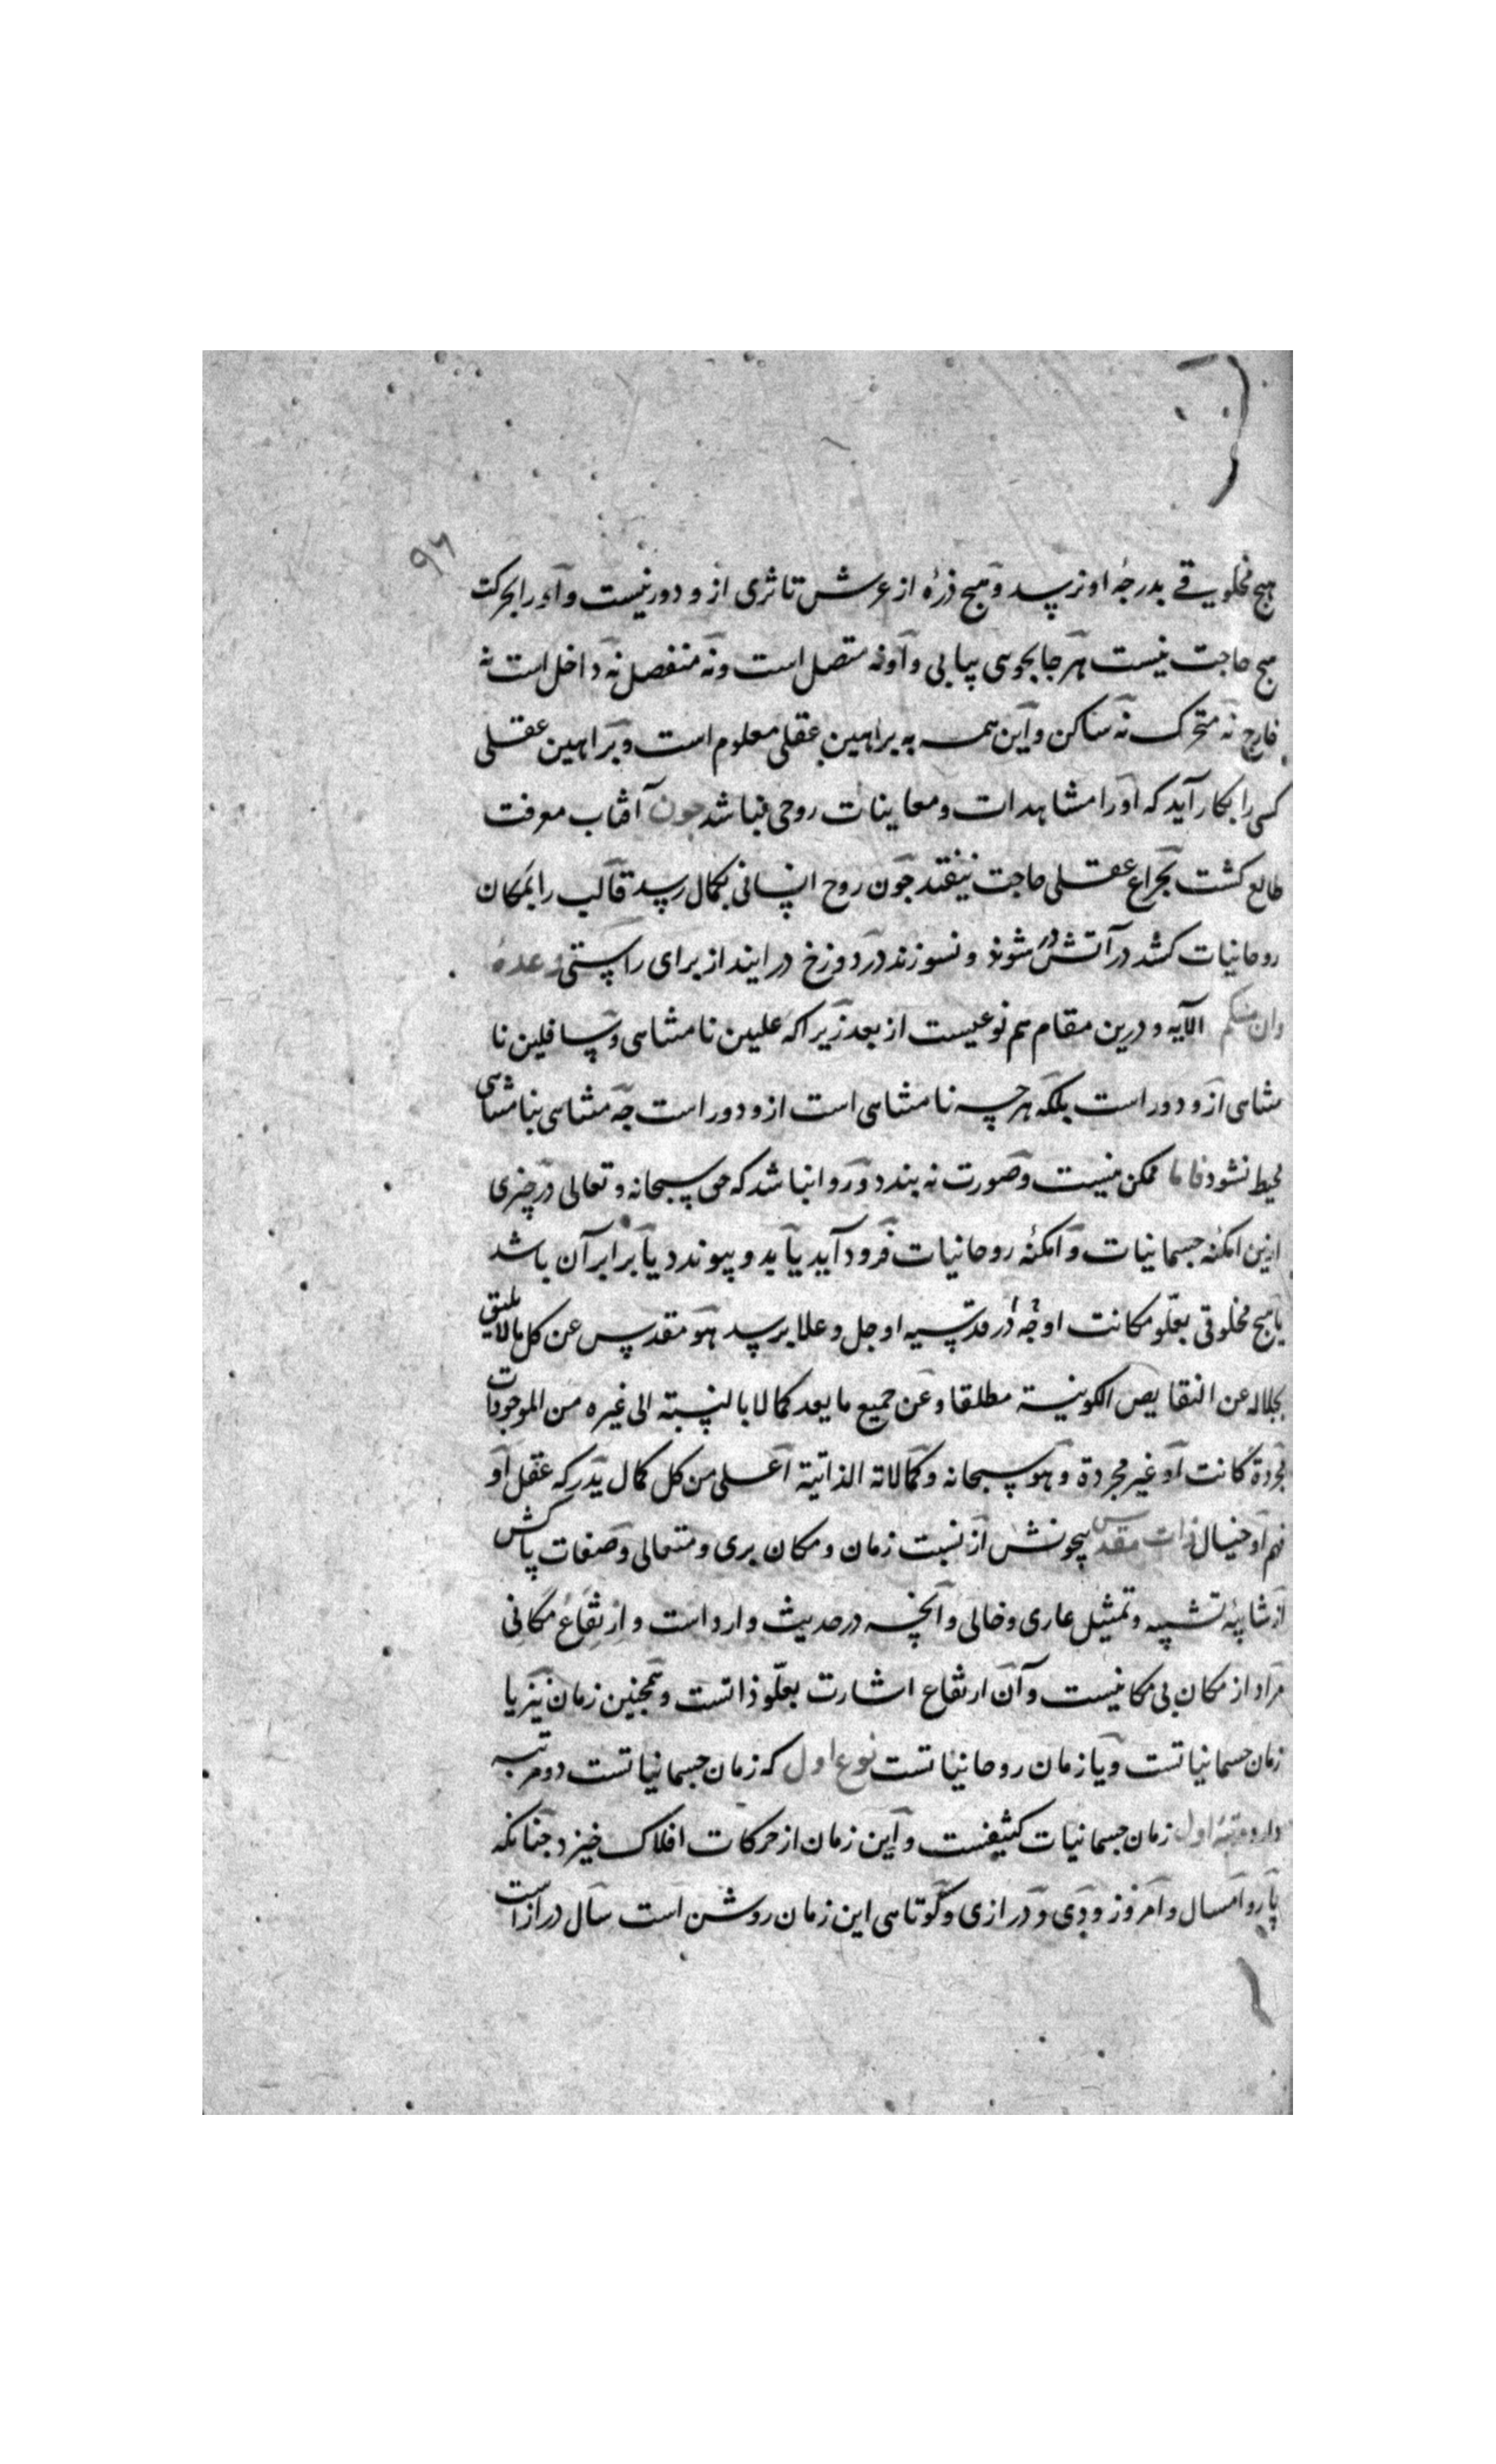 ۹۶
هیچ مخلوقے بدرجهٔ او نرسد و هیچ ذرهٔ از عرش تا ثری ازو دور نیست و او را بحرکت
هیچ حاجت نیست هر جا بجوی بیابی و او نه متصل است و نه منفصل نه داخل است نه
خارج نه متحرک نه ساکن و این همه به براهین عقلی معلوم است و براهین عقلی
کسی را بکار آید که او را مشاهدات و معاینات روحی نباشد چون آفتاب معرفت
طالع کشت بچراغ عقلی حاجت نیفتد چون روح انسانی بکمال رسد قالب را بمکان
روحانیات کشد در آتش در شوند و نسوزند در دوزخ در ایند از برای راستی وعدهٔ
وان منکم الایه و درین مقام هم نوعیست از بعد زیرا که علیین نامتناهی و سافلین نا
متناهی ازو دور است بلکه هر چه نامتناهی است ازو دور است چه متناهی بنامتناهی
محیط نشود فاما ممکن نیست و صورت نه بندد و روا نباشد که حق سبحانه و تعالی در چیزی
ازین امکنه جسمانیات و امکنهٔ روحانیات فرود آید یا بدو پیوندد یا برابر آن باشد
یا هیچ مخلوقی بعلو مکانت او جل و علا برسد هو مقدس عن کل ما لا یلیق
بجلاله عن النقایص الکونیة مطلقا و عن جمیع ما یعد کمالا بالنسبته الی غیره من الموجودات
مجردة کانت او غیر مجردة و هو سبحانه و کمالاته الذاتیة اعلی من کل کمال یدرکه عقل او
فهم او خیال ذات مقدس بیچونش از نسبت زمان و مکان بری و متعالی و صفات پاکش
از شایبهٔ تشبیه و تمثیل عاری و خالی و آنچه در حدیث وارد است و ارتفاع مکانی
مراد از مکان بی مکانیست و آن ارتفاع اشارت بعلو ذاتست و همچنین زمان نیز یا
زمان جسمانیاتست و یا زمان روحانیاتست نوع اول که زمان جسمانیاتست دو مرتبه
دارد مرتبهٔ اول زمان جسمانیات کثیفست و این زمان از حرکات افلاک خیزد چنانکه
پار و امسال و امروز و دی و درازی و کوتاهی این زمان روشن است سال دراز است